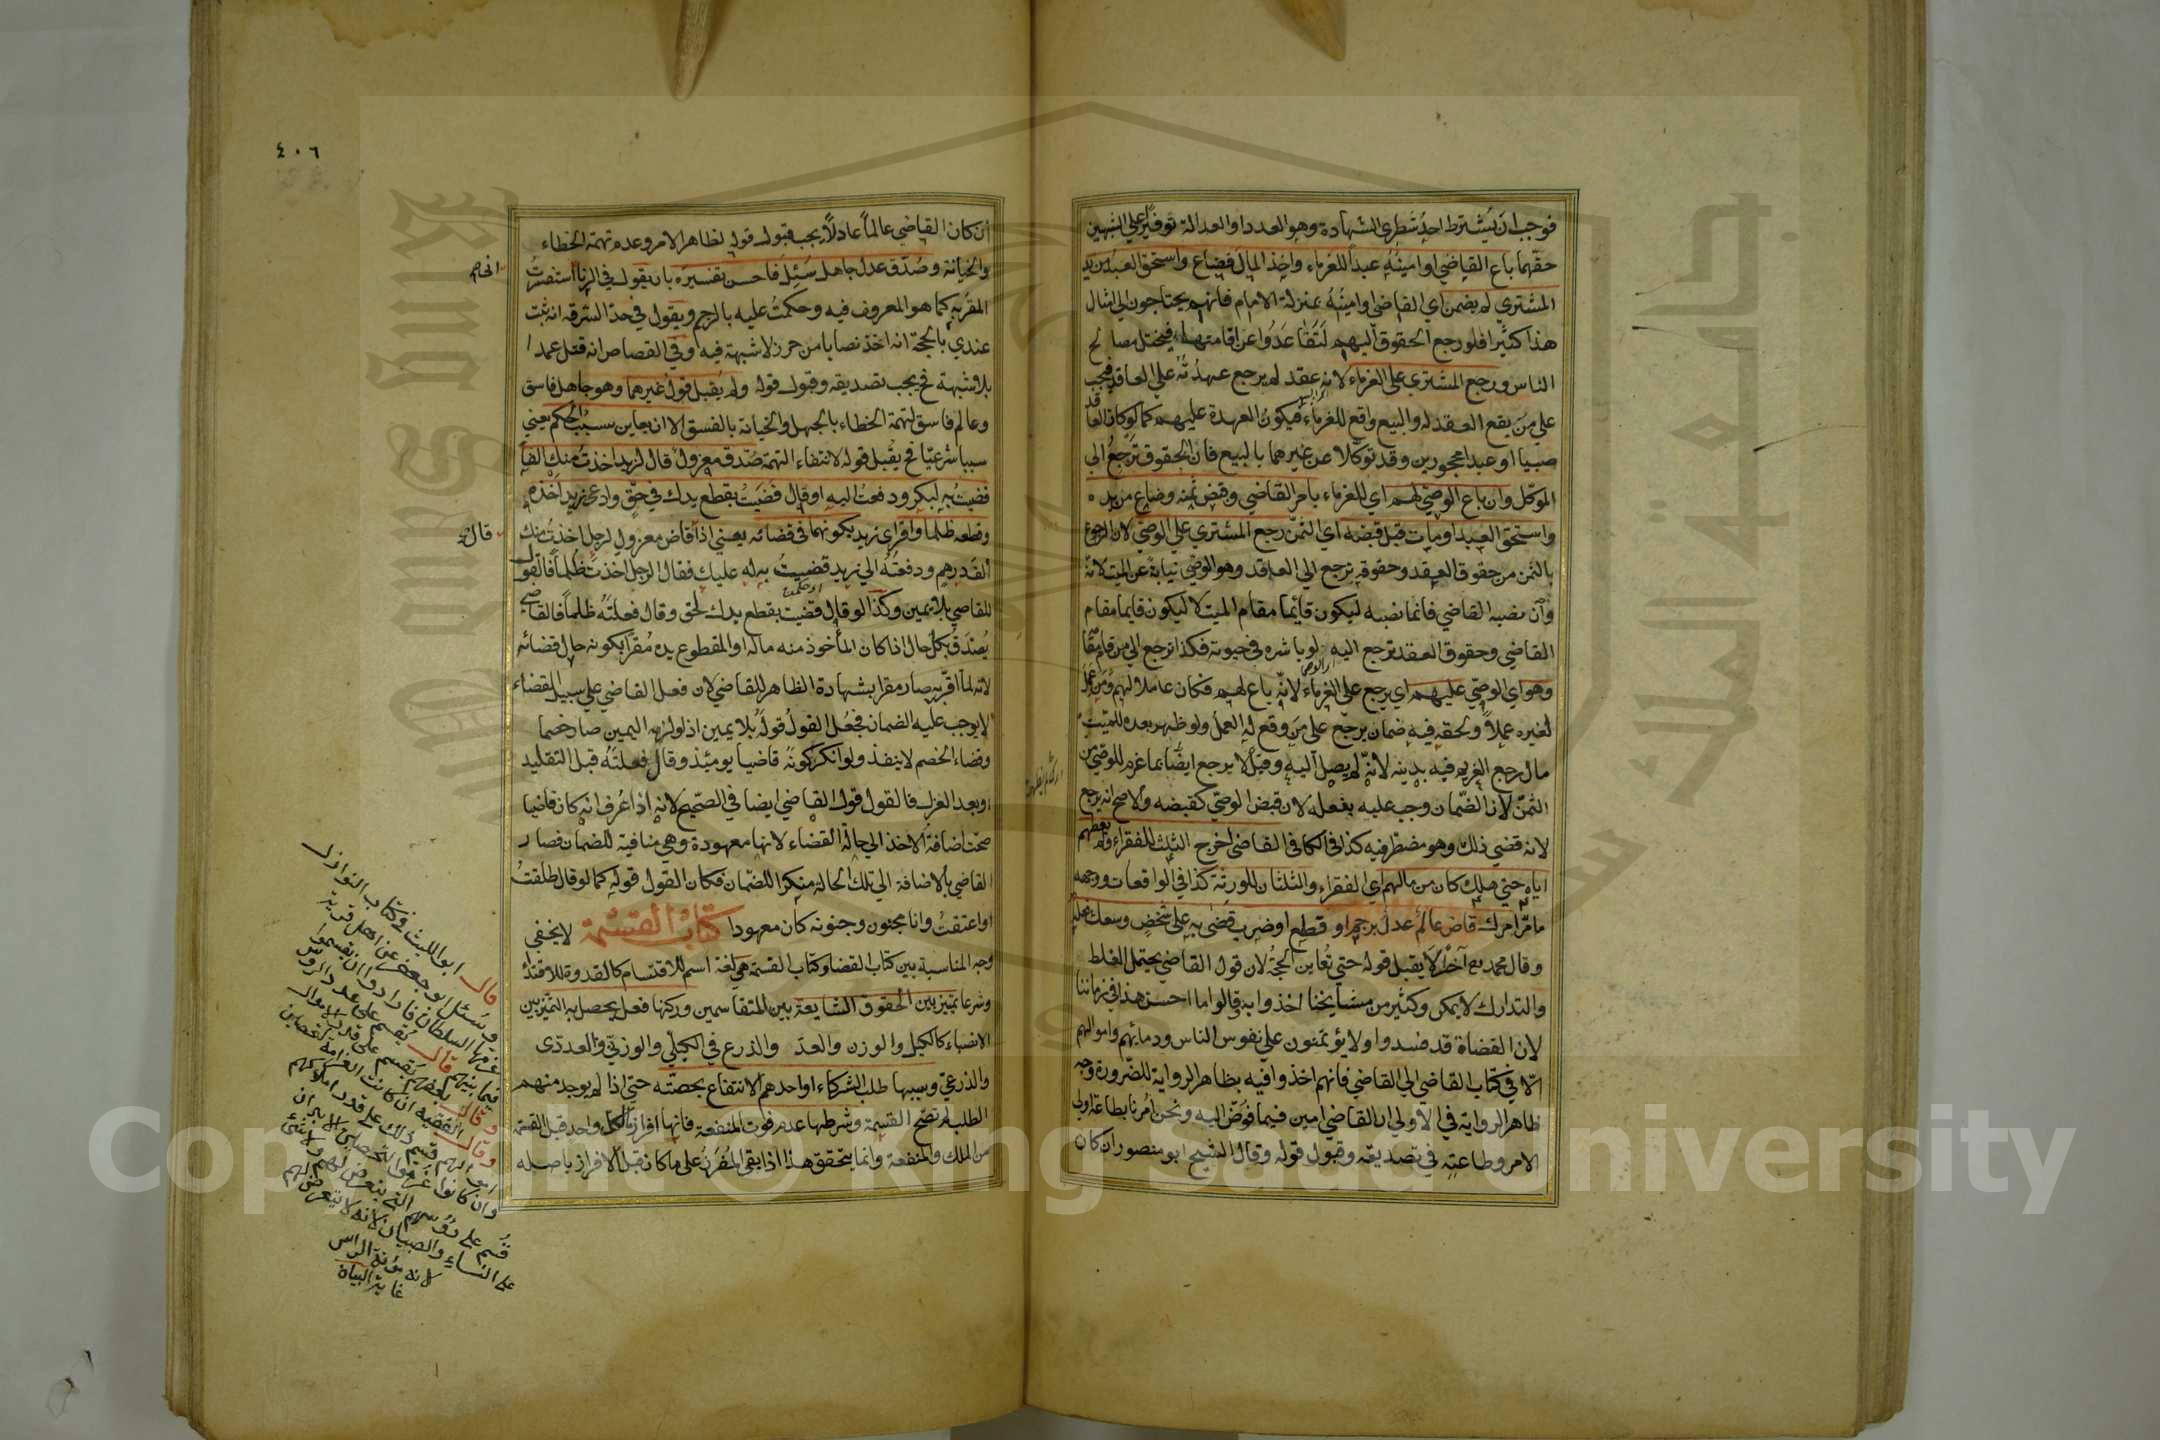 فوجب ان يشترط احد شطري الشهادة وهو العدد او العدالة توفيرا على الشبهين
حقهما باع القاضي او امينه عبدا للغرماء واخذ المال فضاع واستحق العبد من يد
المشتري لم يضمن اي القاضي او امينه بمنزلة الامام فانهم يحتاجون الى امثال
هذا كثيرا فلو رجع الحقوق اليهم لتقاعدوا عن اقامتها فيختل مصالح
الناس ورجع المشتري على الغرماء لانه عقد لم يرجع عهدته على العاقد فيجب
على من يقع العقد له والبيع واقع للغرماء فيكون العهدة عليهم كما لو كان العاقد
صبيا او عبدا محجورين وقد توكلا عن غيرهما بالبيع فان الحقوق ترجع الى
الموكل وان باع الوصي لهم اي للغرماء بامر القاضي وقبض ثمنه وضاع من يده
واستحق العبد او مات قبل قبضه اي الثمن رجع المشتري على الوصي لان الرجوع
بالثمن من حقوق العقد وحقوقه ترجع الى العاقد وهو الوصي نيابة عن الميت لانه
وان نصبه القاضي فانما نصبه ليكون قائما مقام الميت لا ليكون قايما مقام
القاضي وحقوق العقد ترجع اليه لو باشره في حيوته فكذا ترجع الى من قام مقامه
وهو اي الوصي عليهم اي يرجع على الغرماء لانه باع لهم فكان عاملا لهم ومن عمل
لغيره عملا ولحقه فيه ضمان يرجع على من وقع له العمل ولو ظهر بعده للميت
مال رجع الغريم فيه بدينه لانه لم يصل اليه وقيل لا يرجع ايضا بما غرم للوصي من
الثمن لان الضمان وجب عليه بفعله لان قبض الوصي كقبضه والاصح انه يرجع
لانه قضي ذلك وهو مضطر فيه كذا في الكافي القاضي اخرج الثلث للفقراء ولم يعطهم
اياه حتى هلك كان من مالهم اي الفقراء والثلثان للورثة كذا في الواقعات ووجهه
ما مر امرك قاض عالم عدل برجم او قطع او ضرب قضى به على شخص وسعك فعله
وقال محمد رح آخرا لا يقبل قوله حتى تعاين الحجة لان قول القاضي يحتمل الغلط
والتدارك لا يمكن وكثير من مشايخنا اخذوا به قالوا ما احسن هذا في زماننا
لان القضاة قد فسدوا ولا يؤتمنون على نفوس الناس ودمائهم واموالهم
الا في كتاب القاضي الى القاضي فانهم اخذوا فيه بظاهر الرواية للضرورة وجه
ظاهر الرواية في الاولى ان القاضي امين فيما فوض اليه ونحن امرنا بطاعة اولي
الامر وطاعته في تصديقه وقبول قوله وقال الشيخ ابو منصور ان كان
٤٠٦
ان كان القاضي عالما عادلا يجب قبول قوله لظاهر الامر وعدم تهمة الخطاء
والخيانة وصدق عدل جاهل سئل فاحسن تفسيره بان يقول في الزنا استفسرت
المقر به كما هو المعروف فيه وحكمت عليه بالرجم ويقول في حد السرقة انه ثبت
عندي بالحجة انه اخذ نصابا من حرز لا شبهة فيه وفي القصاص انه قتل عمدا
بلا شبهة فح يجب تصديقه وقبول قوله ولم يقبل قول غيرهما وهو جاهل فاسق
وعالم فاسق لتهمة الخطاء بالجهل والخيانة بالفسق الا ان يعاين سبب الحكم يعني
سببا شرعيا فح يقبل قوله لانتفاء التهمة صدق معزول قال لزيد اخذت منك الفا
قضيت به لبكر ودفعت اليه او قال قضيت بقطع يدك في حق وادعى زيد اخذه
وقطعه ظلما واقر اي زيد بكونهما في قضائه يعني اذا قاض معزول لرجل اخذت منك
الف درهم ودفعته الى زيد قضيت به له عليك فقال الرجل اخذت ظلما فالقول
للقاضي بلا يمين وكذا لو قال قضيت بقطع يدك لحق وقال فعلته ظلما فالقاضي
يصدق بكل حال اذا كان المأخوذ منه ماله او المقطوع يده مقرا بكونه حال قضائه
لانه لما اقر به صار مقرا بشهادة الظاهر للقاضي لان فعل القاضي على سبيل القضاء
لا يوجب عليه الضمان فجعل القول قوله بلا يمين اذ لو لزمه اليمين صار خصما
وقضاء الخصم لا ينفذ ولو انكر كونه قاضيا يومئذ وقال فعلته قبل التقليد
او بعد العزل فالقول قول القاضي ايضا في الصحيح لانه اذا عرف انه كان قاضيا
صحت اضافة الاخذ الى حالة القضاء لانها معهودة وهي منافية للضمان فصار
القاضي بالاضافة الى تلك الحالة منكرا للضمان فكان القول قوله كما لو قال طلقت
او اعتقت وانا مجنون وجنونه كان معهودا كتاب القسمة لا يخفى
وجه المناسبة بين كتاب القضا وكتاب القسمة هي لغة اسم للاقتسام كالقدوة للاقتداء
وشرعا تمييز بين الحقوق الشايعة بين المتقاسمين وركنها فعل يحصل به التمييز بين
الانصباء كالكيل والوزن والعد والذرع في الكيلي والوزني والعددي
والذرعي وسببها طلب الشركاء او احدهم الانتفاع بحصته حتى اذا لم يوجد منهم
الطلب لم تصح القسمة وشرطها عدم فوت المنفعة فانها افراز ما لكل واحد قبل القسمة
من الملك والمنفعة وانما يتحقق هذا اذا بقي المفرز على ما كان قبل الافراز باصله
قال
قال ابو الليث في كتاب النوازل
وسئل ابو جعفر عن اهل قرية
غرمها السلطان فارادوا ان يقسموا
فيما بينهم قال يقسم على عدد الروس
وقال بعضهم تقسم على قدر الاموال
وقال الفقيه ان كانت الغرامة لتحصين
املاكهم قسم ذلك على قدر املاكهم
وان كانوا غرموا لتحصين الابدان
قسم على رؤسهم الذي يتعرض لهم ولا شئ
على النساء والصبيان لانه لا يتعرض لهم
لانه مؤنة الراس
غاية البيان